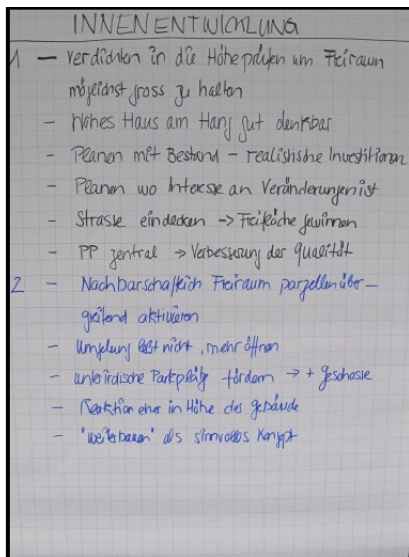 INNENENTWICKLUNG
1 — Verdichten in die Höhe prüfen um Freiraum
möglichst gross zu halten
- Hohes Haus am Hang gut denkbar
- Planen mit Bestand - realistische Investitionen
- Planen wo Interesse an Veränderungen ist
- Strasse eindecken → Freifläche gewinnen
- PP zentral → Verbesserung der Qualität
2 - Nachbarschaftlich Freiraum parzellenüber-
greifend aktivieren
- nicht, mehr öffnen
- unterirdische Parkplätze fördern → + geschosse
- Reaktion eher in Höhe des gebäude
- "weiterbauen" als sinnvolles Konzept